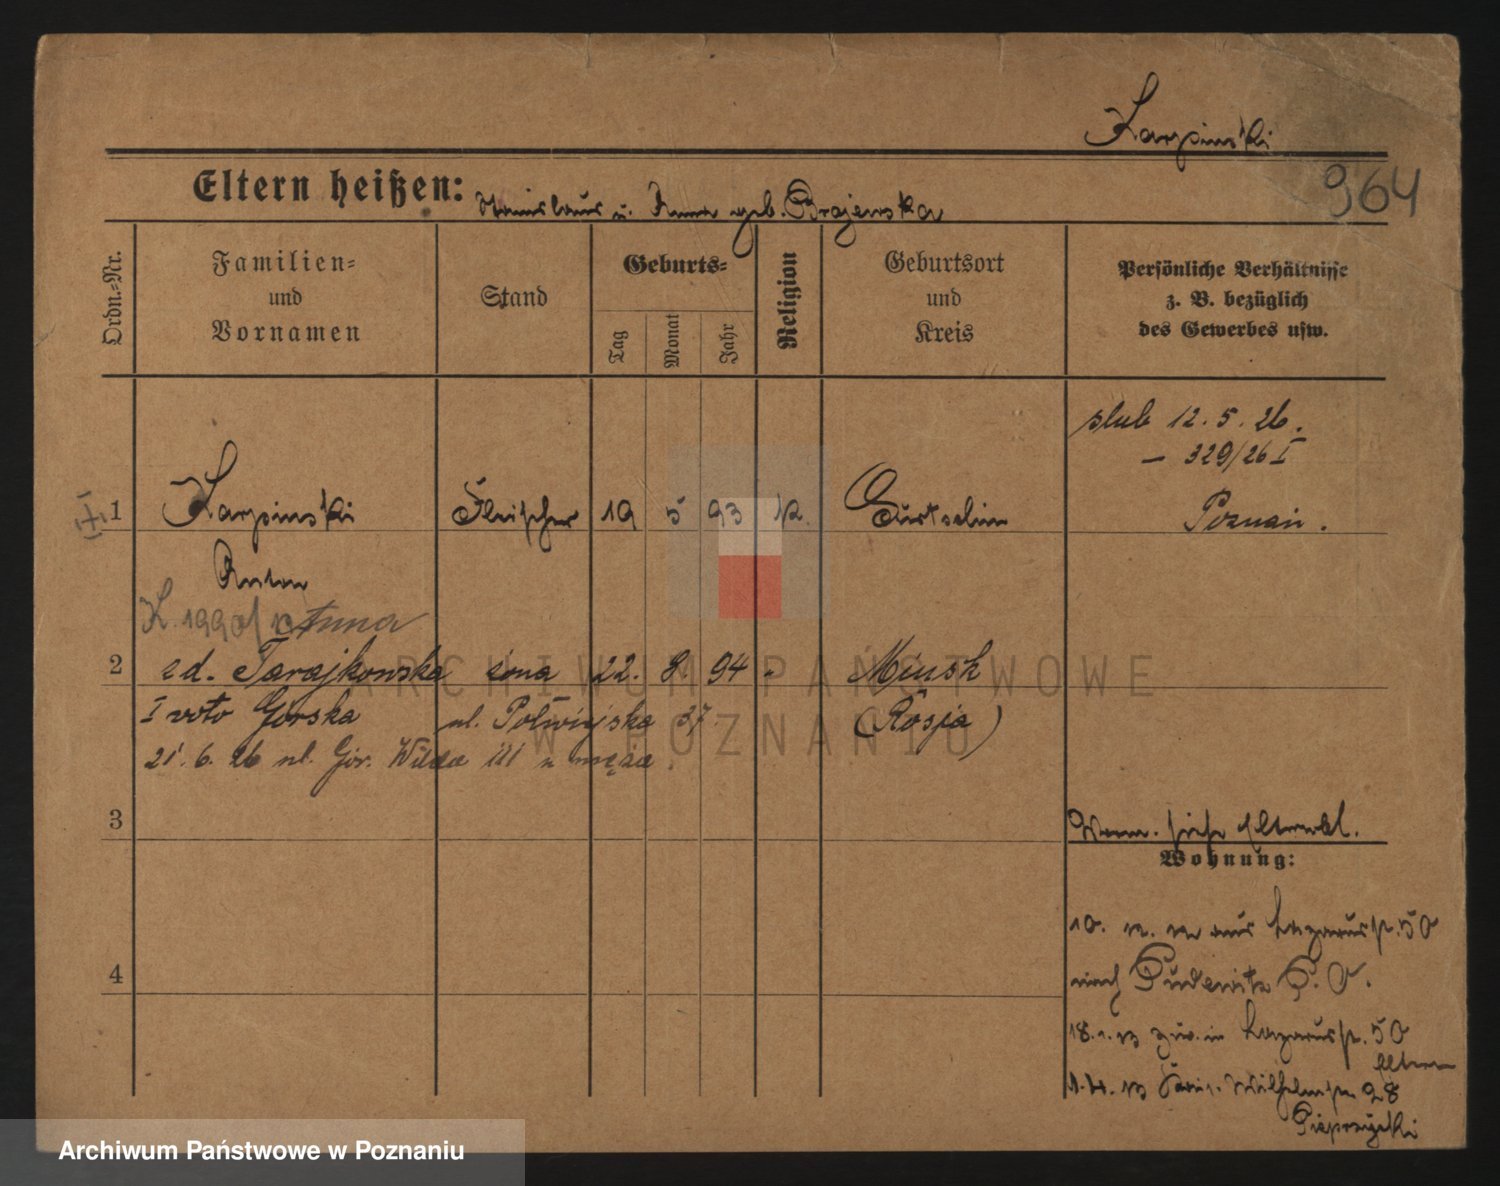 Karpinski
964
Eltern heißen: Stanislaus u. Anna geb. Brajewska
Ordn.-Nr.
Familien-
und
Vornamen
Stand
Geburts-
Tag
Monat
Jahr
Religion
Geburtsort
und
Kreis
Persönliche Verhältnisse
z. B. bezüglich
des Gewerbes usw.
ślub 12. 5. 26.
– 329/26 I
Poznań.
1 Karpinski Fleischer 19 5 93 k. Gurtschin
Anton
Anna
2 zd. Tarajkowska żona 22. 8. 94 " Mińsk
I voto Górska ul. Półwiejska 37. (Rosja)
21. 6. 26 ul. Gór. Wilda 111 u męża.
3
Verm. siehe Elternbl.
Wohnung:
10. aus Lazarusstr. 50
nach Pudewitz P. O.
4
18. 1. 13 zur. in Lazarusstr. 50
Eltern
1. 4. 13 Wilhelmstr. 28
ARCHIWUM PAŃSTWOWE
W POZNANIU
Archiwum Państwowe w Poznaniu